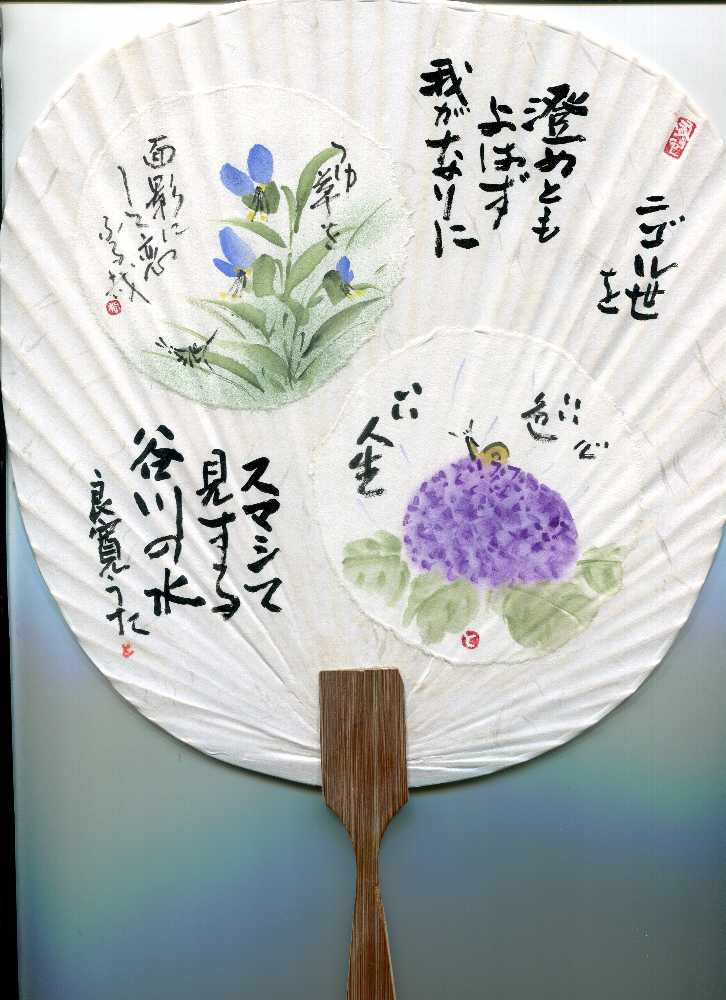 ニゴル世
を
澄めとも
よはず
我がなりに
スマシて
見する
谷川の水
良寛うた
つゆ草を
面影に
して恋
ふる哉
人生